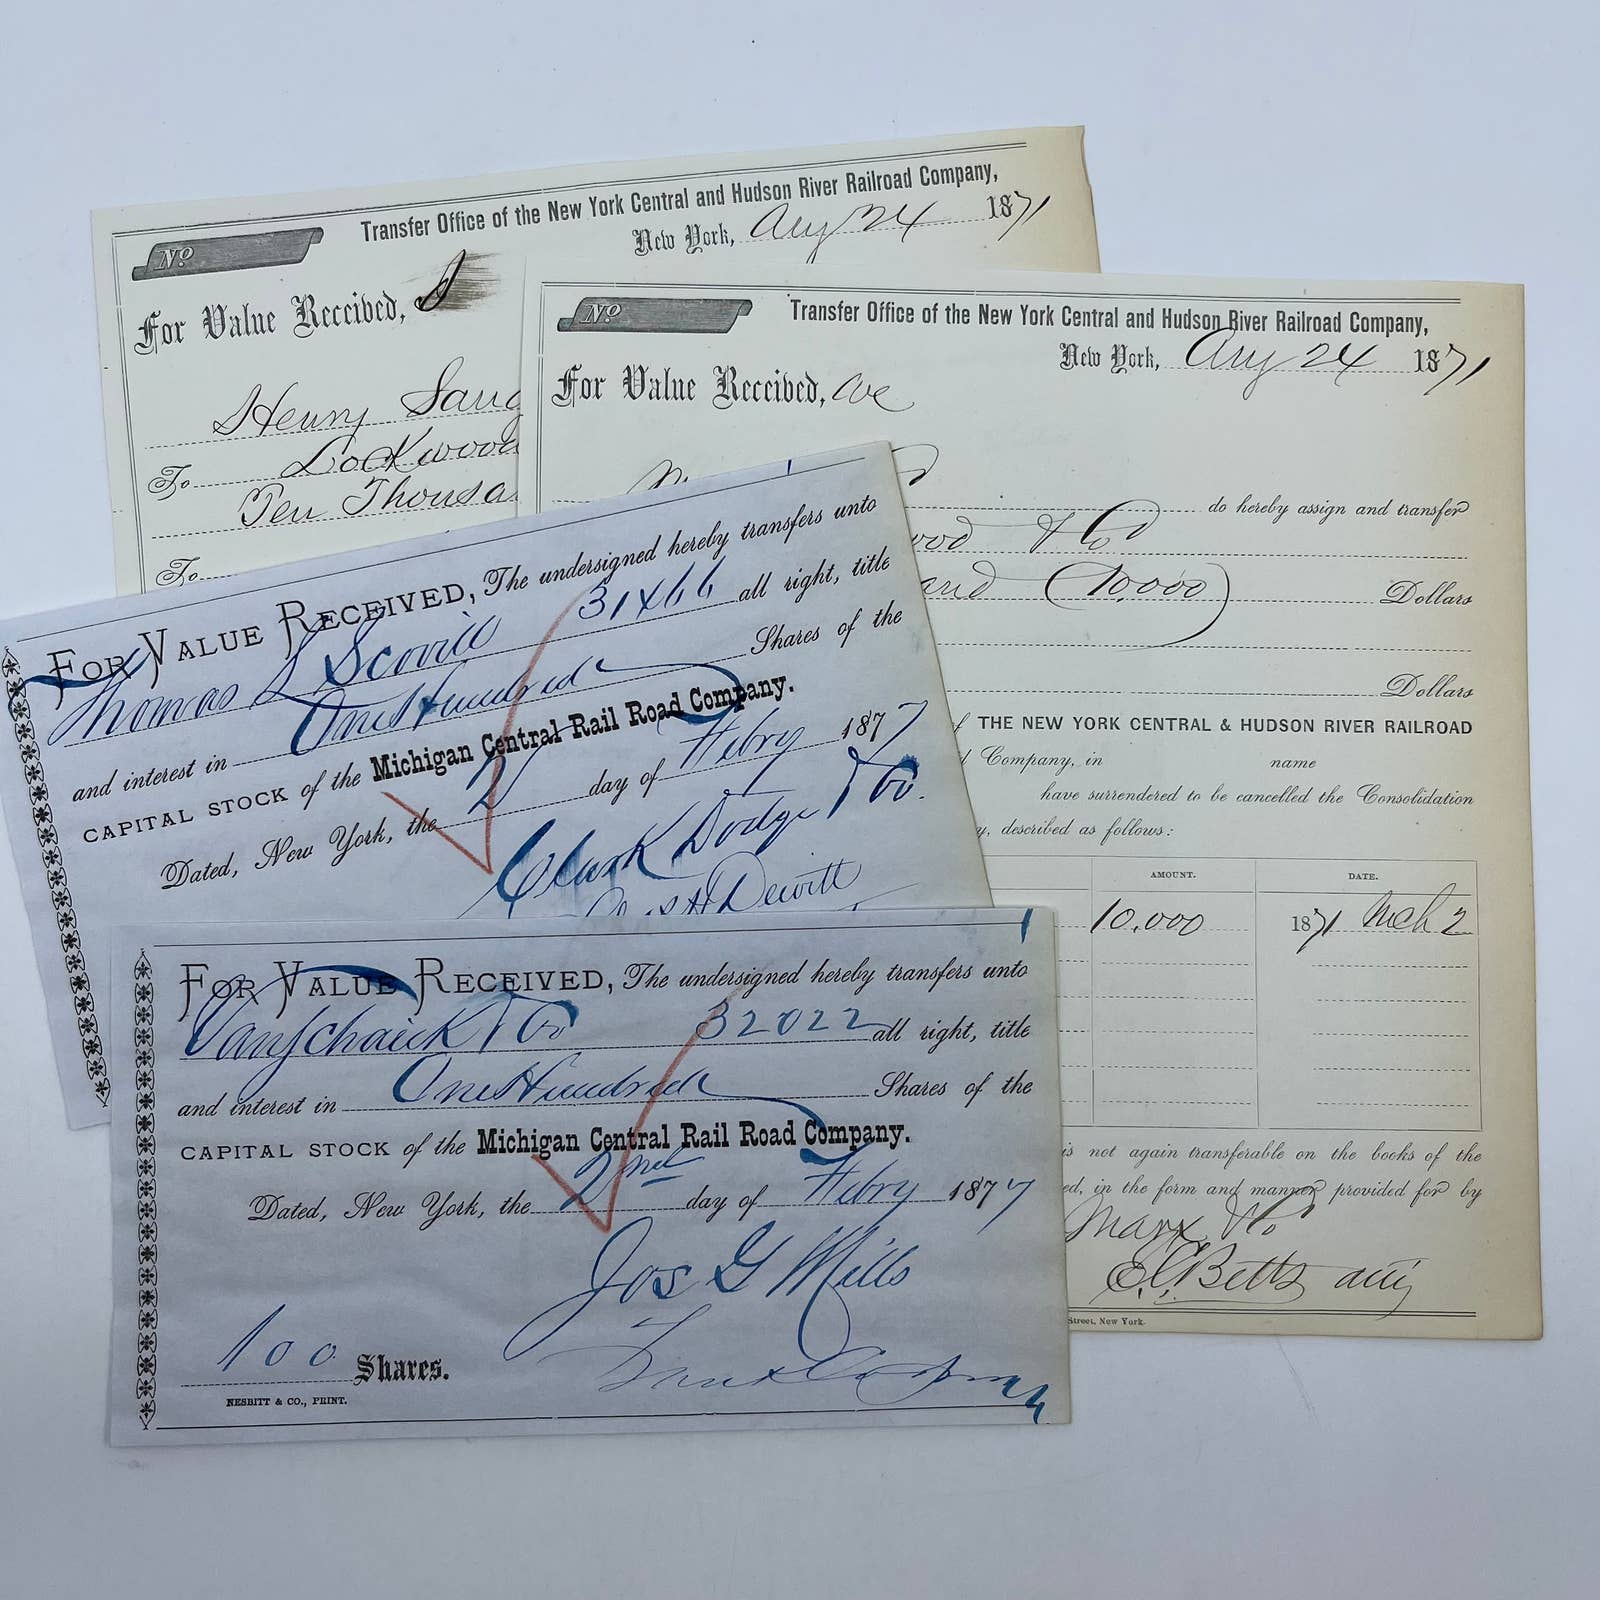 Transfer Office of the New York Central and Hudson River Railroad Company,
No
New York, Aug 24 1871
For Value Received, I
Henry
To Lockwood
Ten Thousa
To
Transfer Office of the New York Central and Hudson River Railroad Company,
No
New York, Aug 24 1871
For Value Received, we
do hereby assign and transfer
ood & Co
and (10,000) Dollars
Dollars
of THE NEW YORK CENTRAL & HUDSON RIVER RAILROAD
Company, in name
have surrendered to be cancelled the Consolidation
y, described as follows:
AMOUNT. DATE.
10,000 1871 Mch 2
is not again transferable on the books of the
ed, in the form and manner provided for by
Marx & Co
E. C. Betts atty
Street, New York.
FOR VALUE RECEIVED, The undersigned hereby transfers unto
Thomas L Scovill 31466 all right, title
and interest in One Hundred Shares of the
CAPITAL STOCK of the Michigan Central Rail Road Company.
Dated, New York, the 2 day of Febry 1877
Clark Dodge & Co.
Dewitt
FOR VALUE RECEIVED, The undersigned hereby transfers unto
VanSchaick & Co 32022 all right, title
and interest in One Hundred Shares of the
CAPITAL STOCK of the Michigan Central Rail Road Company.
Dated, New York, the 2nd day of Febry 1877
Jos G Mills
100 Shares.
NESBITT & CO., PRINT.